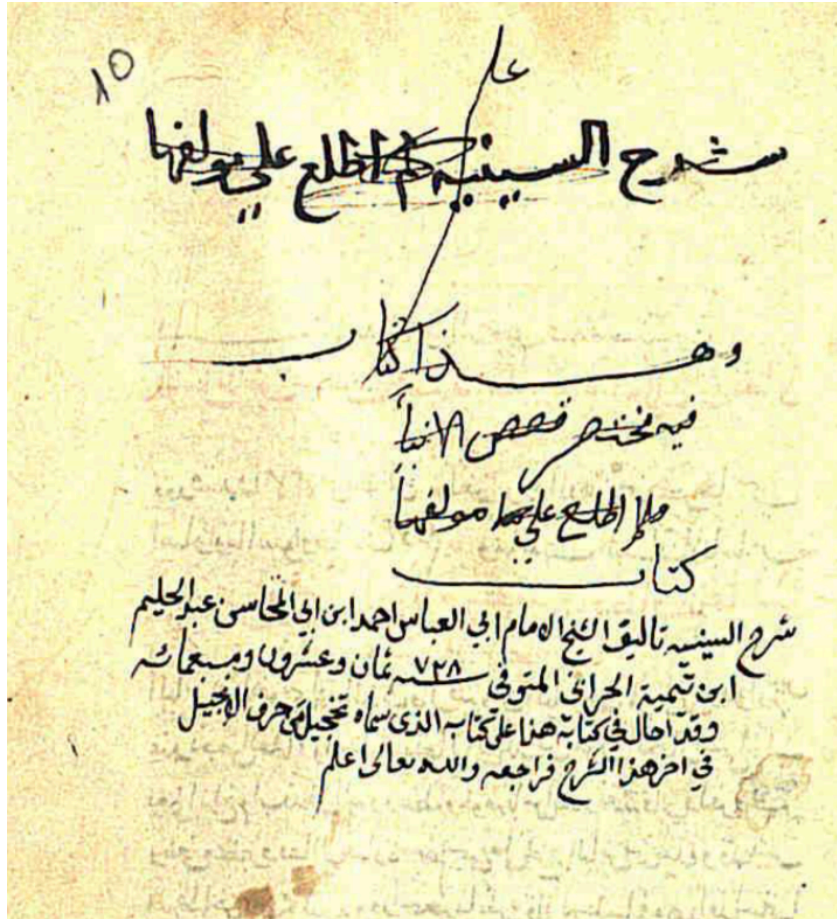 ١٥
على
شرح السينيه لم اطلع علي مولفها
وهذا كتاب
فيه مختصر قصص الانبيا
ولم اطلع علي مولفها
كتاب
شرح السينيه تاليف الشيخ الامام ابي العباس احمد ابن ابي المحاسن عبد الحليم
ابن تيمية الحراني المتوفى سنه ٧٢٨ ثمان وعشرون وسبعمائه
وقد احال في كتابه هذا على كتابه الذي سماه تخجيل من حرف الانجيل
في اخر هذا الشرح فراجعه والله تعالى اعلم